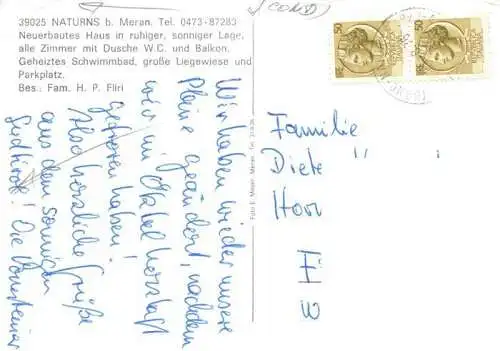 39025 NATURNS b. Meran. Tel. 0473-87283
Neuerbautes Haus in ruhiger, sonniger Lage,
alle Zimmer mit Dusche W.C. und Balkon.
Geheiztes Schwimmbad, große Liegewiese und
Parkplatz.
Bes.: Fam. H. P. Fliri
Wir haben wieder unsere
Pläne geändert, nachdem
wir im Ötztal herzhaft
gefroren haben!
Also herzliche Grüße
aus dem sonnigen
Südtirol! Die
50
50
Familie
Diete " "
Horr
F
W